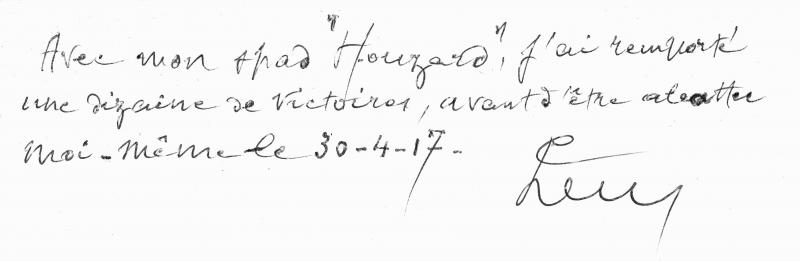 Avec mon spad "Houzard", j'ai remporté
une dizaine de victoires, avant d'être abattu
moi-même le 30-4-17-